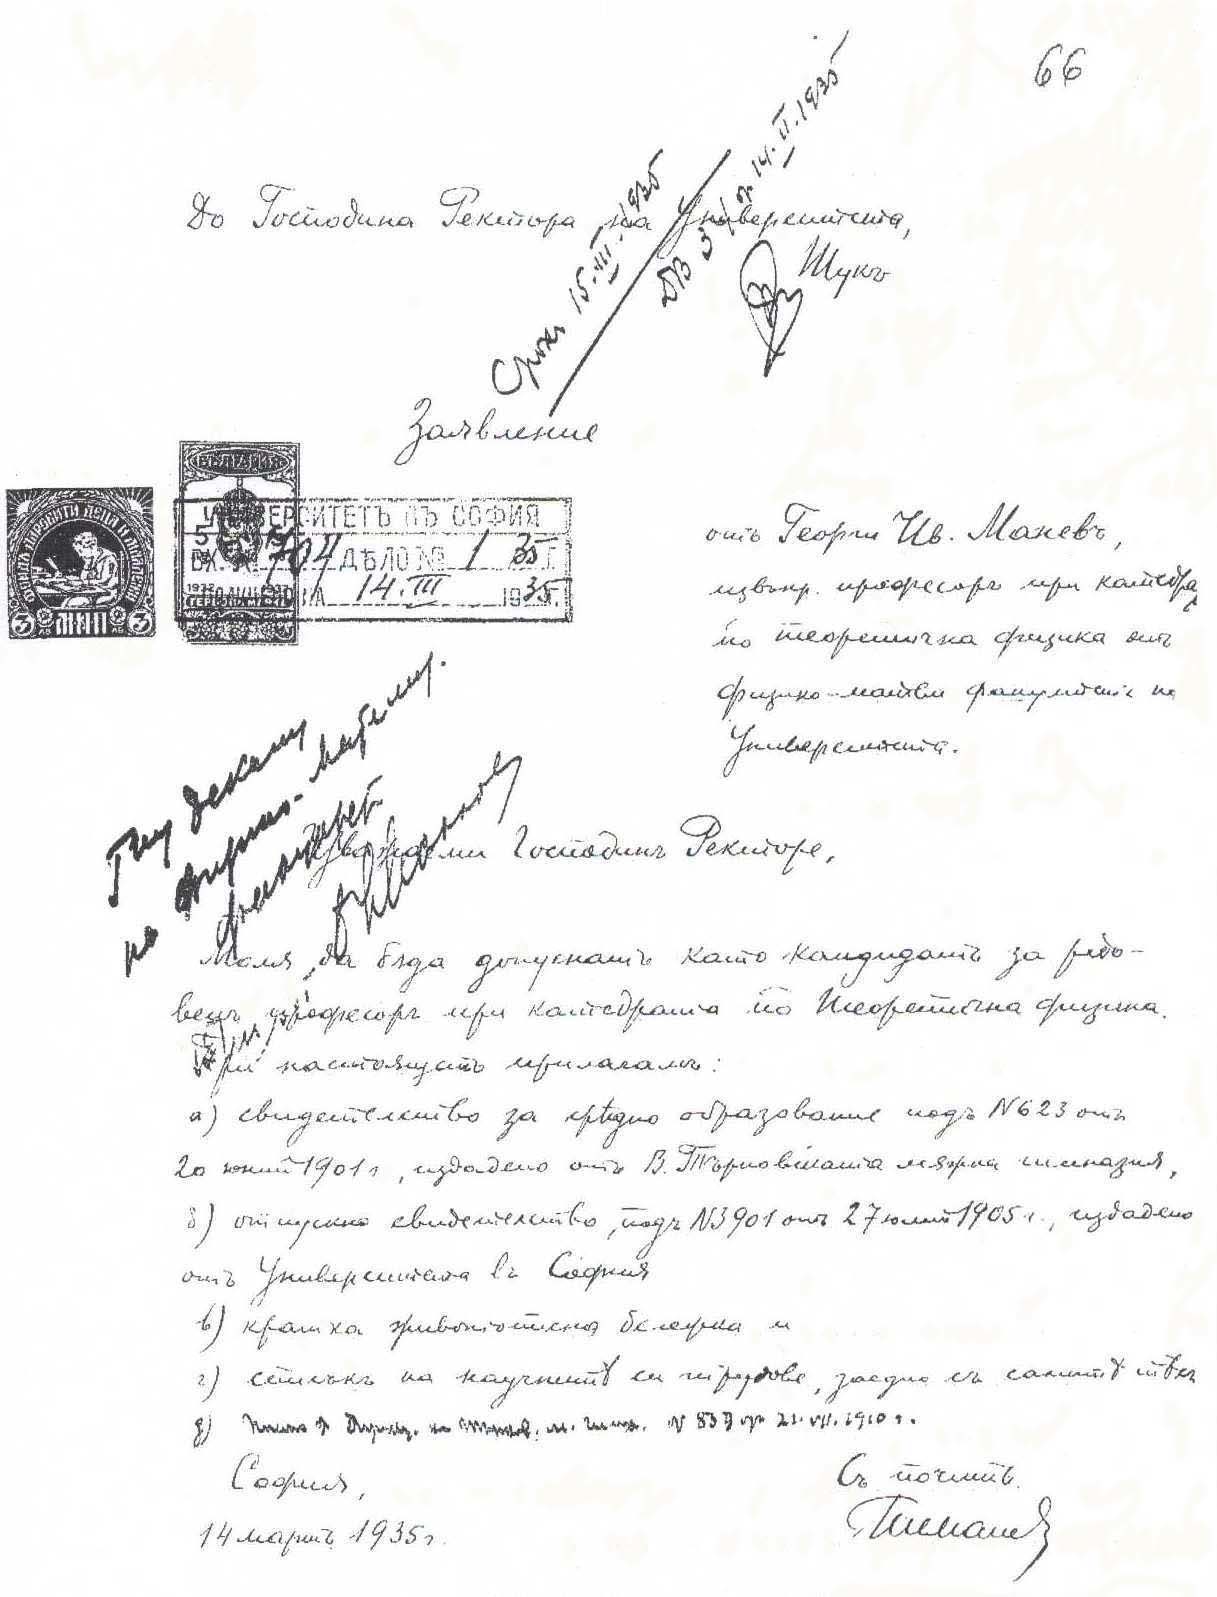 66
До Господина Ректора на Университета,
Тукъ
Срокъ 15.III.1935
ДВ 34 от 14.II.1935
Заявление
БЪЛГАРИЯ
3 ЛВ МНП ЛВ 3
УНИВЕРСИТЕТЪ ВЪ СОФИЯ
ВХ. № 704 ДѢЛО № 1 35 Г.
ПОЛУЧЕНО НА 14.III 1935 Г.
отъ Георги Ив. Маневъ,
извънр. професоръ при катедра
по теоретична физика отъ
физико-матем факултетъ на
Университета.
декану
на физико-матем.
факултет
Уважаеми Господинъ Ректоре,
Моля, да бѫда допуснатъ като кандидатъ за редо-
венъ професоръ при катедрата по Теоретична физика.
При настоящето прилагамъ:
а) свидетелство за срѣдно образование подъ N623 отъ
20 юний 1901 г, издадено отъ В. Търновската мѫжка гимназия,
б) отпускно свидетелство, подъ N3901 отъ 27 юлий 1905 г., издадено
отъ Университета въ София
в) кратка животописна бележка и
г) списъкъ на научнитѣ си трудове, заедно съ самитѣ тѣхъ
д) N 837 от 21.VII.1910 г.
София,
14 мартъ 1935 г.
Съ почитъ
ГИМанев